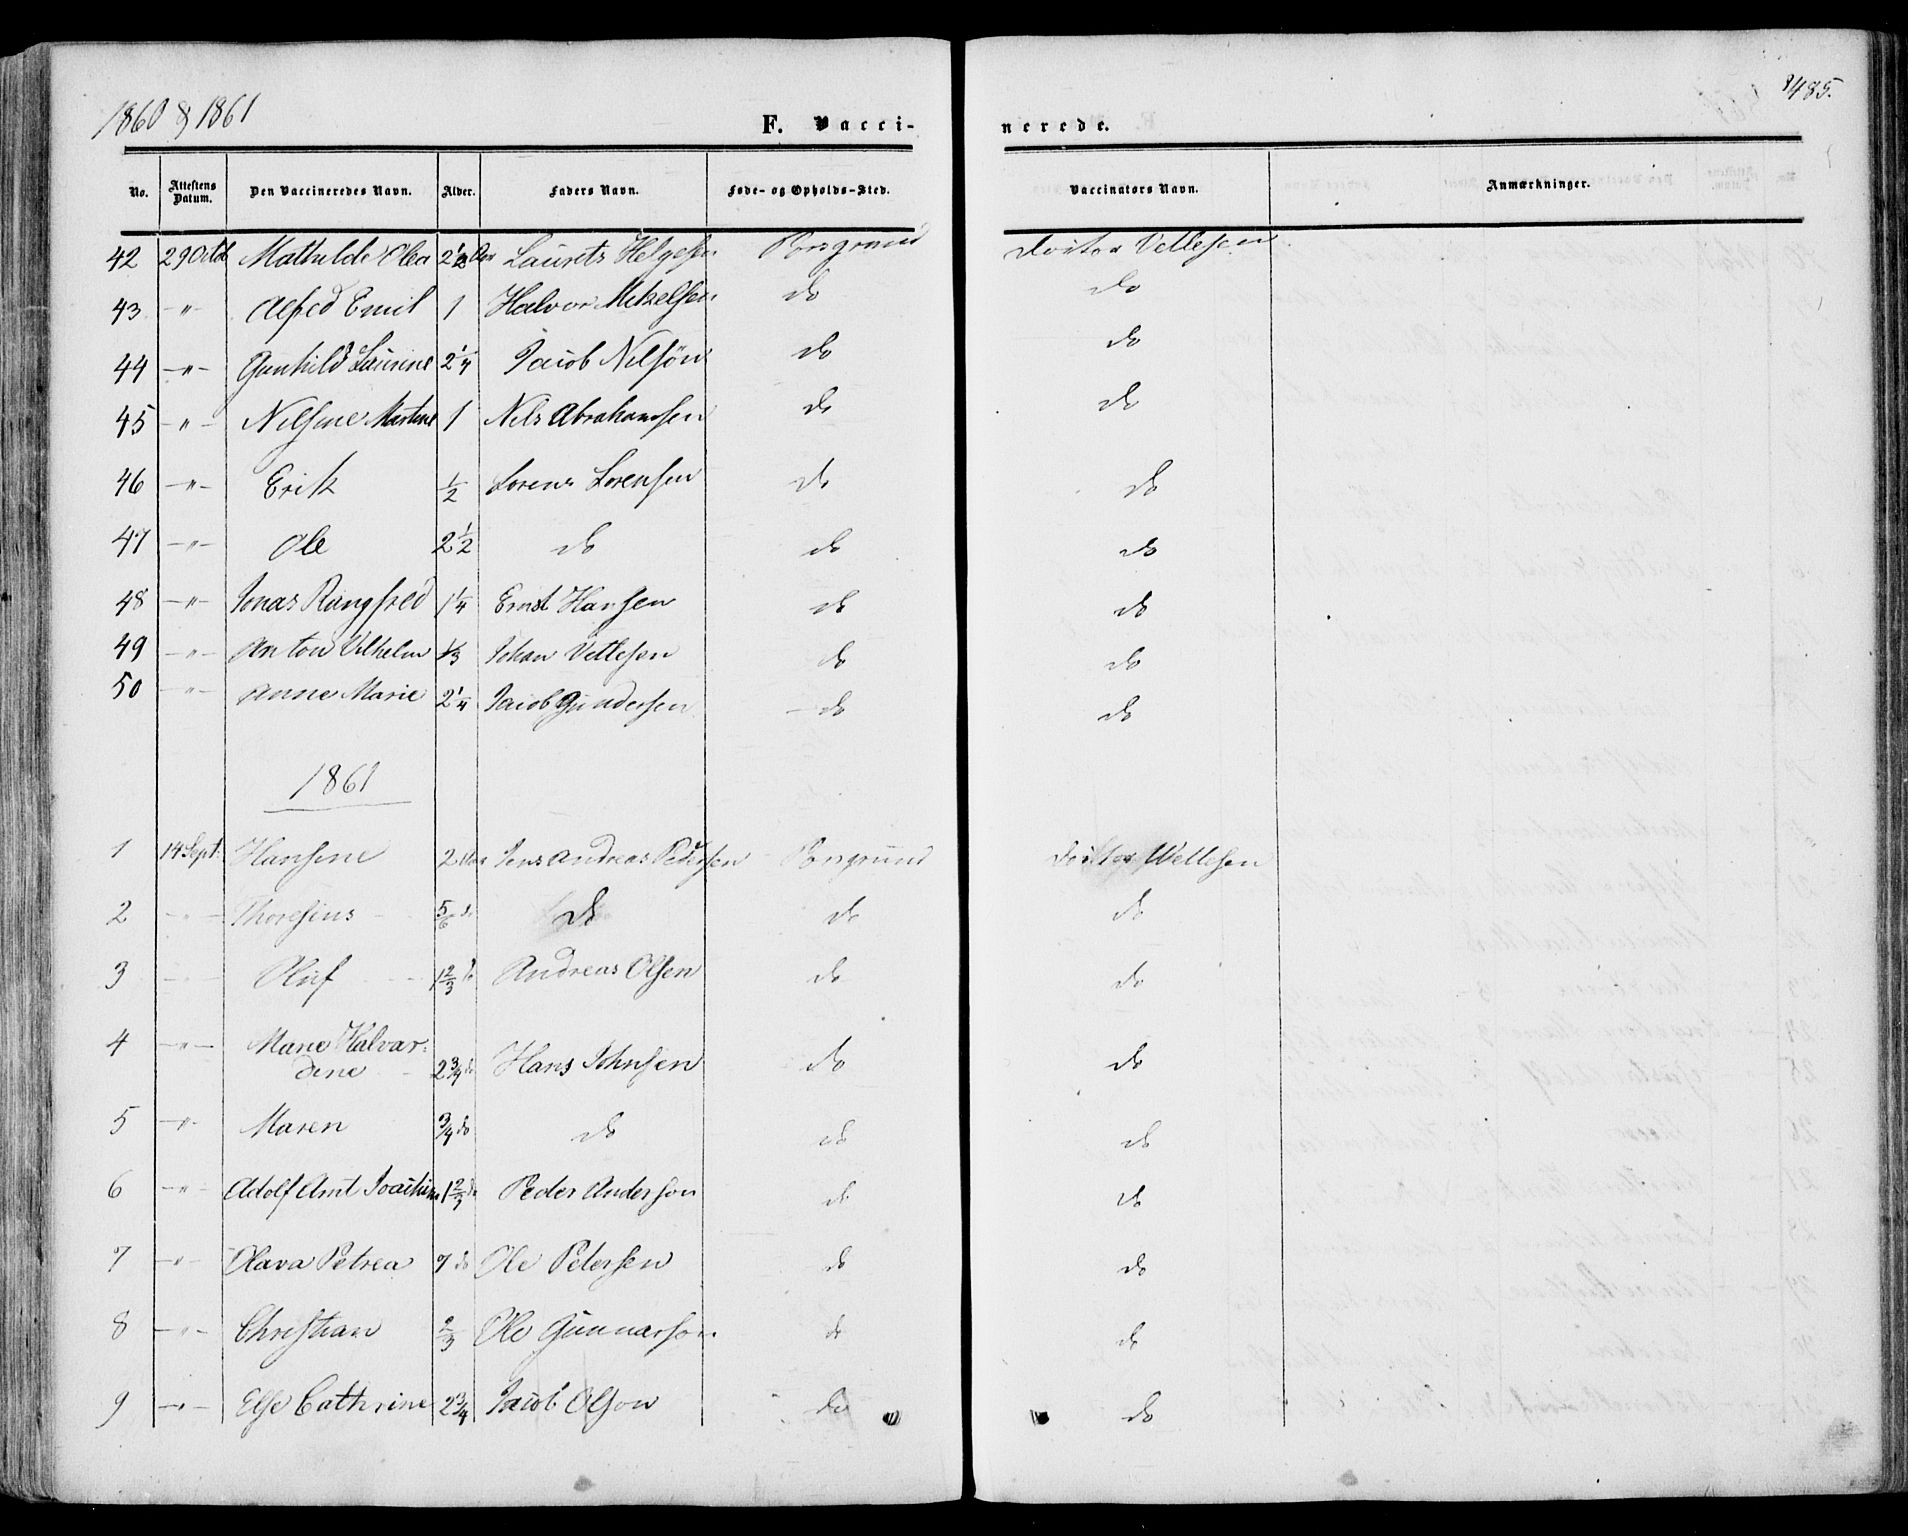 1860 & 1861
F. Vacci-
nerede.
485.
No. Attestens Datum. Den Vaccineredes Navn. Alder. Faders Navn. Føde- og Opholds-Sted. Vaccinators Navn. Anmærkninger.
42 29 Octob Mathilde Olea 2 1/2 Aar Laurits Helgesen Porsgrund Doctor Vettesen
43 -"- Alfred Emil 1 Halvor Mikelsen do do
44 -"- Gunhild Laurine 2 1/4 Jacob Nilsøn do do
45 -"- Nilsine Martine 1 Nels Abrahamsen do do
46 -"- Erik 1/2 Lorens Lorensen do do
47 -"- Ole 2 1/2 do do do
48 -"- Jonas Rangfred 1 1/4 Ernst Hansen do do
49 -"- Anton Vilhelm 1/3 Johan Vettesen do do
50 -"- Anne Marie 2 1/4 Jacob Gundersen do do
1861
1 14 Sept. Hansine 2 Aar Jens Andreas Pedersen Porsgrund Doctor Wettesen
2 -"- Thoresius 5/6 do do do do
3 -"- Oluf 1 2/3 do Andreas Olsen do do
4 -"- Marie Halvar-
dine 2 3/4 do Hans Johnsen do do
5 -"- Maren 3/4 do do do do
6 -"- Adolf Amt Joachim 1 2/3 do Peder Anderson do do
7 -"- Olava Petrea 7 do Ole Petersen do do
8 -"- Christian 2/3 Ole Gunnarson do do
9 -"- Else Cathrine 2 3/4 Jacob Olson do do